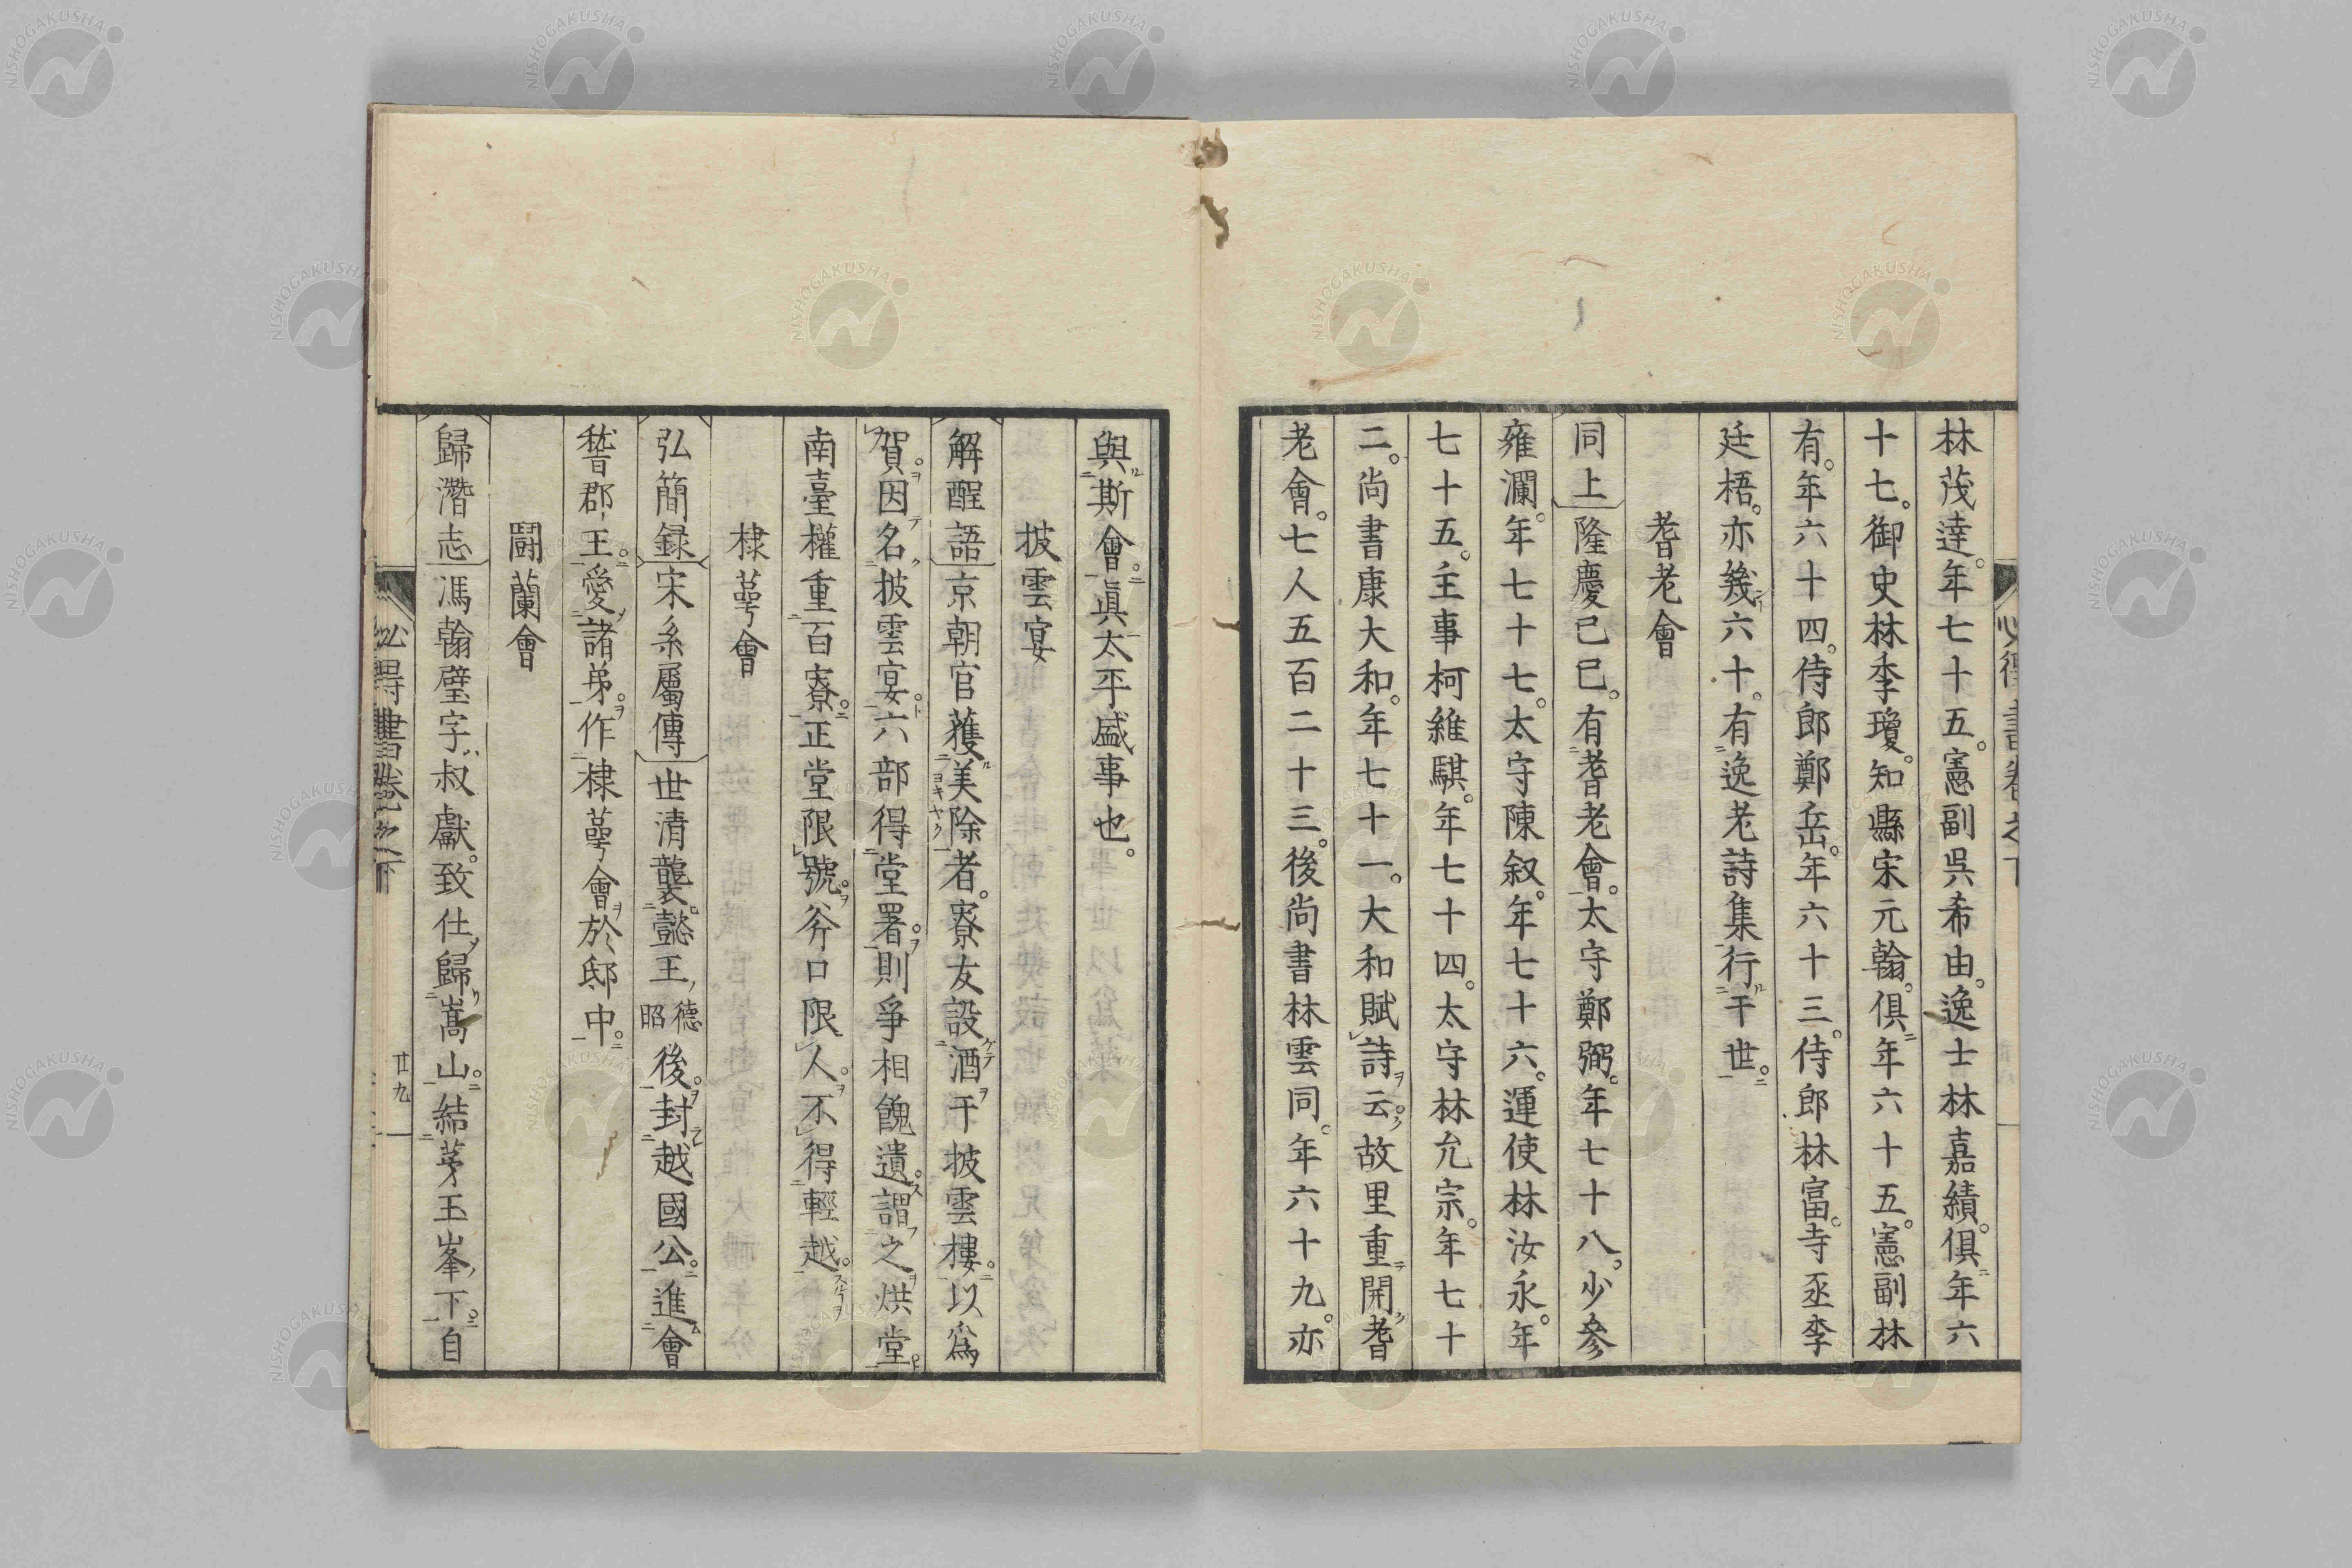 林茂達。年七十五。憲副吳希由。逸士林嘉績。俱年六
十七。御史林季瓊。知縣宋元翰。俱年六十五。憲副林
有。年六十四。侍郎鄭岳。年六十三。侍郎林富。寺丞李
廷梧。亦幾六十。有逸老詩集行于世。
耆老會
同上 隆慶己巳。有耆老會。太守鄭弼。年七十八。少參
雍瀾。年七十七。太守陳叙。年七十六。運使林汝永。年
七十五。主事柯維騏。年七十四。太守林允宗。年七十
二。尚書康大和。年七十一。大和賦詩云。故里重開耆
老會。七人五百二十三。後尚書林雲同。年六十九。亦
與斯會。眞太平盛事也。
披雲宴
解酲語 京朝官蒦美除者。寮友設酒于披雲樓。以爲
賀。因名披雲宴。六部得堂署。則爭相餽遺。謂之烘堂
南臺權重百寮。正堂限號。斧口限人。不得輕越。
棣萼會
弘簡録 宋系屬傳 世清襲懿王德昭後。封越國公。進會
稽郡王。愛諸弟。作棣萼會於邸中。
鬪蘭會
歸潛志 馮翰璧字叔獻。致仕歸嵩山。結茅玉峯下。自
必得書卷之下
廿九
NISHOGAKUSHA